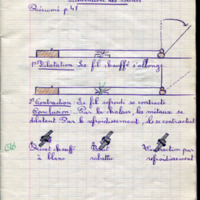 Résumé p 41
1° Dilatation : Le fil chauffé s'allonge
2° Contraction : Le fil refroidi se contracte
Conclusion : Par la chaleur les métaux se
dilatent Par le refroidissement, ils se contractent
Rivet chauffé
à blanc
Rivet
rabattu
Contraction par
refroidissement